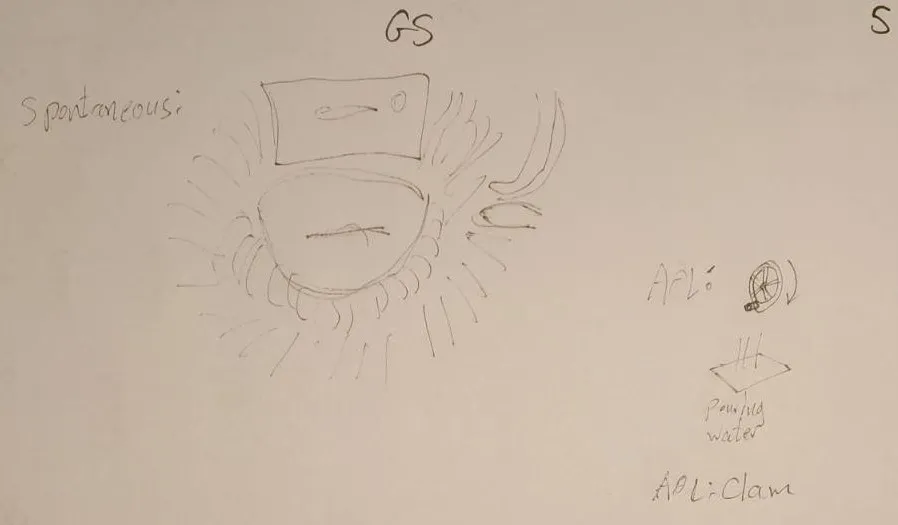 GS
S
Spontaneous:
APL:
Pouring
water
APL: Clam